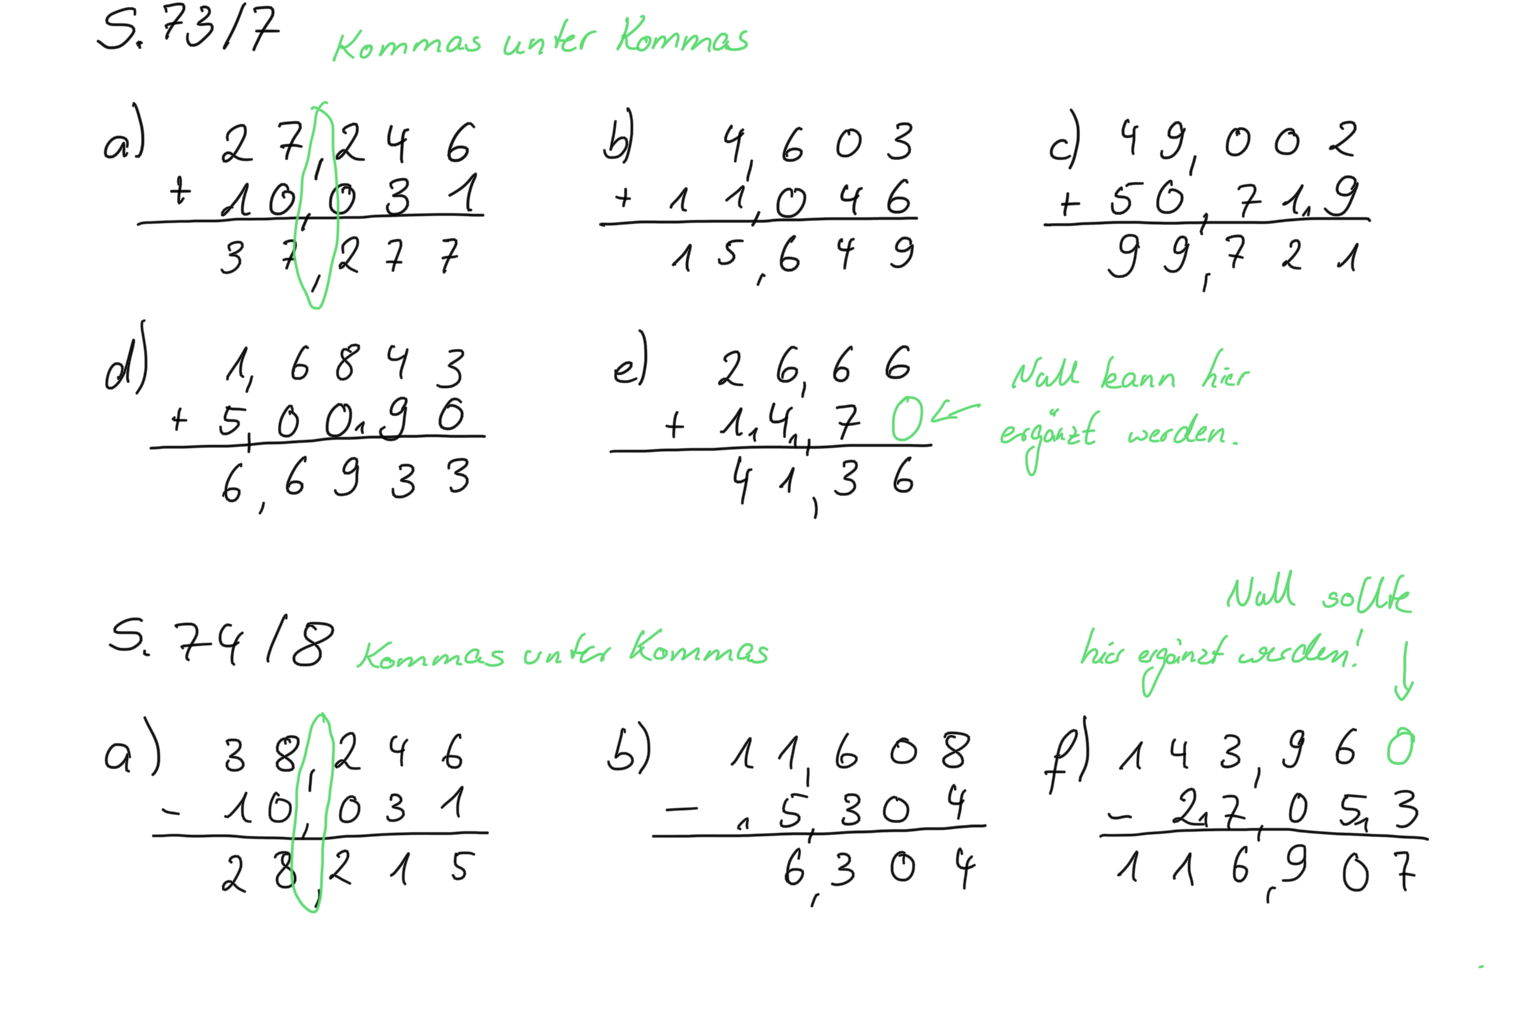 S. 73/7 Kommas unter Kommas
a) 27,246
+ 10,031
37,277
b) 4,603
+ 11,046
15,649
c) 49,002
+ 50,719
99,721
d) 1,6843
+ 5,0090
6,6933
e) 26,66
+ 14,70
41,36
Null kann hier
ergänzt werden.
S. 74/8 Kommas unter Kommas
Null sollte
hier ergänzt werden!
a) 38,246
- 10,031
28,215
b) 11,608
- 5,304
6,304
f) 143,960
- 27,053
116,907